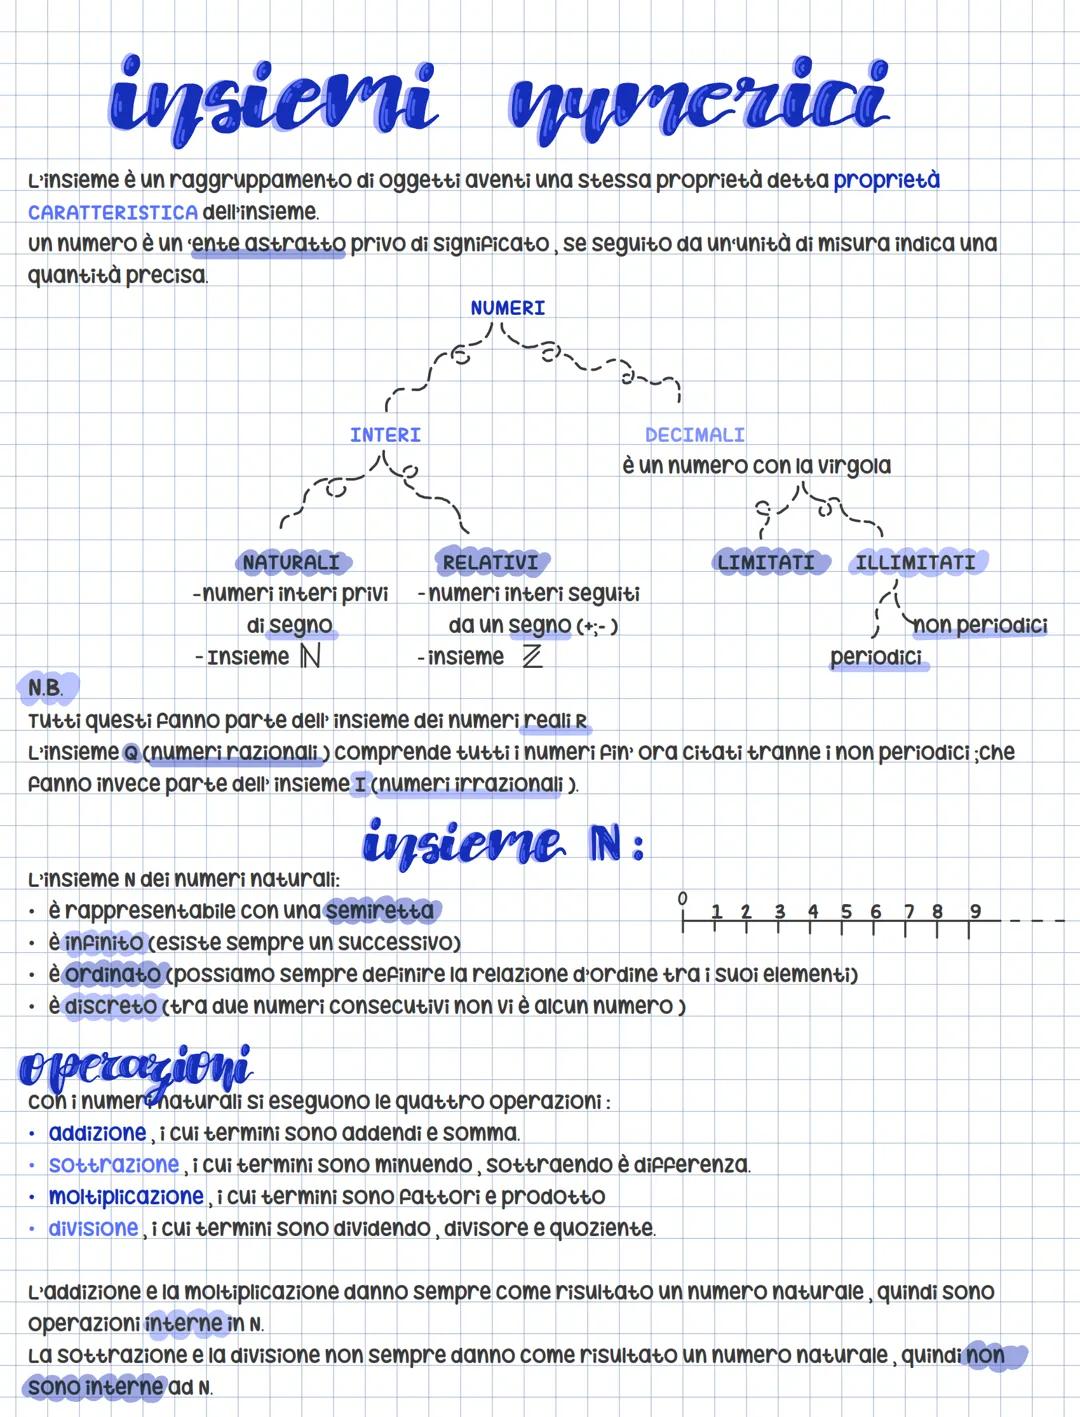 insiemi numerici
L'insieme è un raggruppamento di oggetti aventi una stessa proprietà detta proprietà
CARATTERISTICA dell'insieme.
un numero è un 'ente astratto privo di significato, se seguito da un'unità di misura indica una
quantità precisa.
NUMERI
INTERI DECIMALI
è un numero con la virgola
NATURALI RELATIVI LIMITATI ILLIMITATI
-numeri interi privi -numeri interi seguiti
di segno da un segno (+;-) non periodici
-Insieme ℕ -insieme ℤ periodici
N.B.
Tutti questi fanno parte dell' insieme dei numeri reali R
L'insieme Q (numeri razionali) comprende tutti i numeri fin' ora citati tranne i non periodici ;che
fanno invece parte dell' insieme I (numeri irrazionali).
insieme ℕ:
L'insieme N dei numeri naturali:
• è rappresentabile con una semiretta
0 1 2 3 4 5 6 7 8 9
• è infinito (esiste sempre un successivo)
• è ordinato (possiamo sempre definire la relazione d'ordine tra i suoi elementi)
• è discreto (tra due numeri consecutivi non vi è alcun numero)
operazioni
con i numeri naturali si eseguono le quattro operazioni:
• addizione, i cui termini sono addendi e somma.
• sottrazione, i cui termini sono minuendo, sottraendo è differenza.
• moltiplicazione, i cui termini sono fattori e prodotto
• divisione, i cui termini sono dividendo, divisore e quoziente.
L'addizione e la moltiplicazione danno sempre come risultato un numero naturale, quindi sono
operazioni interne in N.
La sottrazione e la divisione non sempre danno come risultato un numero naturale, quindi non
sono interne ad N.